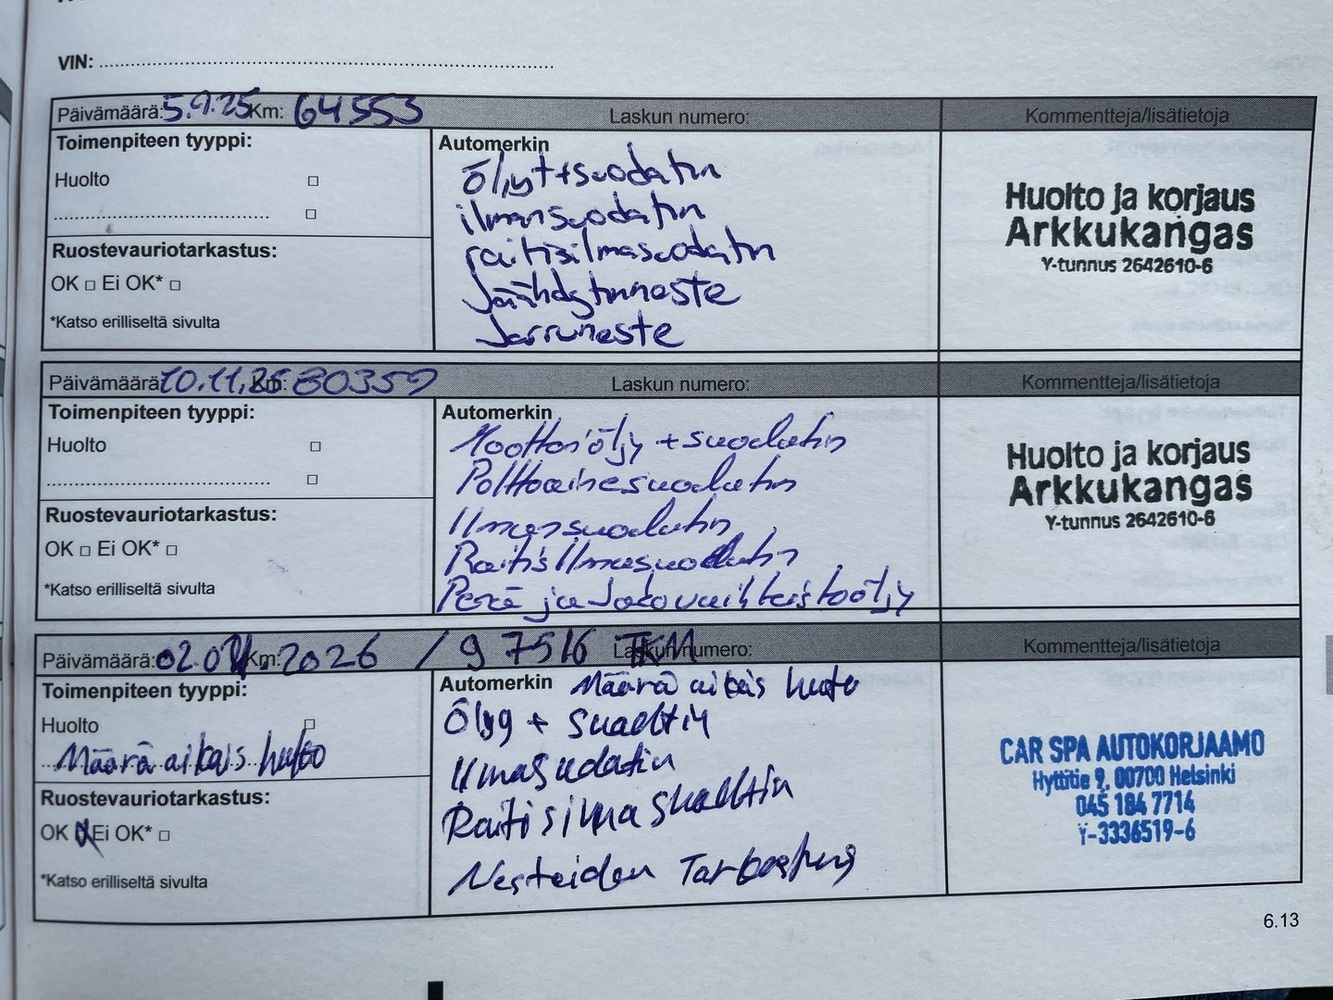 VIN:
Päivämäärä: 5.9.25 Km: 64553 Laskun numero: Kommentteja/lisätietoja
Toimenpiteen tyyppi:
Huolto
Ruostevauriotarkastus:
OK □ Ei OK* □
*Katso erilliseltä sivulta
Automerkin
Öljyt+suodatin
ilmansuodatin
raitisilmasuodatin
Jäähdytinneste
Jarruneste
Huolto ja korjaus
Arkkukangas
Y-tunnus 2642610-6
Päivämäärä 10.11.25 Km: 80359 Laskun numero: Kommentteja/lisätietoja
Toimenpiteen tyyppi:
Huolto
Ruostevauriotarkastus:
OK □ Ei OK* □
*Katso erilliseltä sivulta
Automerkin
Moottoriöljy + suodatin
Polttoainesuodatin
Ilmansuodatin
Raitisilmasuodatin
Perä ja Jakovaihteistoöljy
Huolto ja korjaus
Arkkukangas
Y-tunnus 2642610-6
Päivämäärä: Km: 2026 / 97516 TKM Laskun numero: Kommentteja/lisätietoja
Toimenpiteen tyyppi:
Huolto
Määrä aikais huolto
Ruostevauriotarkastus:
OK Ei OK* □
*Katso erilliseltä sivulta
Automerkin Määrä aikais huolto
Öljy +
Ilmasudatin
Nesteiden
CAR SPA AUTOKORJAAMO
Hyttitie 9, 00700 Helsinki
045 184 7714
Y-3336519-6
6.13